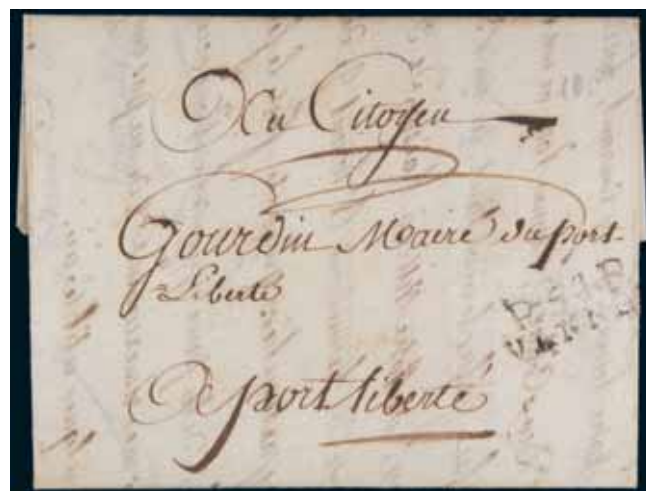 Au Citoyen
Gourdin Maire du port-
Liberté
A port liberté
VANNES